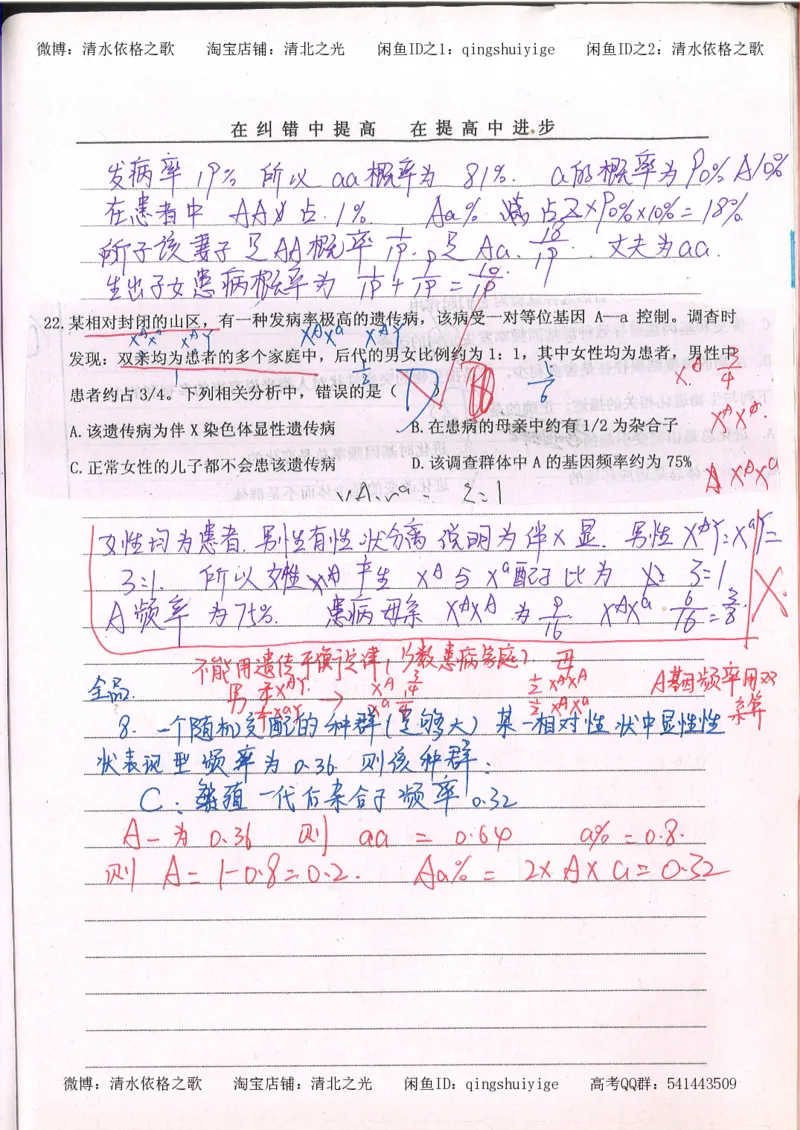 微博：清水依格之歌 淘宝店铺：清北之光 闲鱼ID之1：qingshuiyige 闲鱼ID之2：清水依格之歌
在纠错中提高 在提高中进步
发病率 19% 所以 aa概率为 81%. a的概率为90% A10%
在患者中 AA 占.1% Aa% 占2×90%×10%=18%
所子该妻子是AA概率 1/19. 是 Aa. 18/19. 丈夫为aa.
生出子女患病概率为 1/19+9/19=10/19.
22.某相对封闭的山区，有一种发病率极高的遗传病，该病受一对等位基因 A—a 控制。调查时
发现：双亲均为患者的多个家庭中，后代的男女比例约为 1：1，其中女性均为患者，男性中
患者约占 3/4。下列相关分析中，错误的是（
A.该遗传病为伴 X 染色体显性遗传病 B.在患病的母亲中约有 1/2 为杂合子
C.正常女性的儿子都不会患该遗传病 D.该调查群体中 A 的基因频率约为 75%
女性均为患者.男性有性状分离 说明为伴X显. 男性 XᴬY:XᵃY=
3=1. 所以女性 产生 Xᴬ与Xᵃ配子比为 3=1
A频率 为75%. 患病母亲 XᴬXᴬ 为 9/16 XᴬXᵃ 6/16=3/8.
不能用遗传平衡定律（少数患病家庭）. 母
A基因频率用双亲算
全品.
8. 一个随机交配的种群（足够大）某一相对性状中显性性
状表现型频率为0.36 则该种群：
C：繁殖一代后杂合子频率0.32
A-为0.36 则 aa = 0.64 a%=0.8.
则 A=1-0.8=0.2. Aa%= 2×A×a=0.32
微博：清水依格之歌 淘宝店铺：清北之光 闲鱼ID：qingshuiyige 高考QQ群：541443509